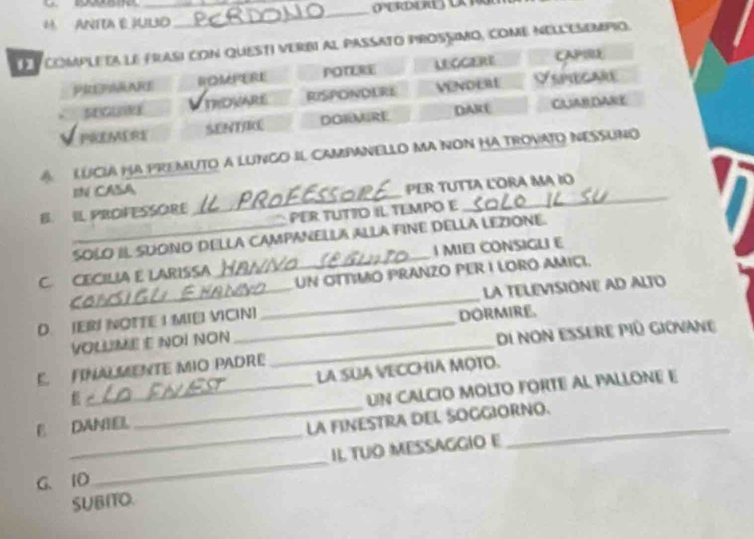 H. ANITA E JULIO PERDONO (PERDERE) LA
12 COMPLETA LE FRASI CON QUESTI VERBI AL PASSATO PROSSIMO, COME NELL'ESEMPIO.
PREPARARE ROMPERE POTERE LEGGERE CAPIRE
SEGUIRE TROVARE RISPONDERE VENDERE SPIEGARE
PREMERE SENTIRE DORMIRE DARE GUARDARE
A. LUCIA HA PREMUTO A LUNGO IL CAMPANELLO MA NON HA TROVATO NESSUNO
IN CASA.
B. IL PROFESSORE IL PROFESSORE PER TUTTA L'ORA MA IO
PER TUTTO IL TEMPO E SOLO IL SU
SOLO IL SUONO DELLA CAMPANELLA ALLA FINE DELLA LEZIONE.
C. CECILIA E LARISSA HANNO SEGUITO I MIEI CONSIGLI E
CONSIGLI E HANNO UN OTTIMO PRANZO PER I LORO AMICI.
D. IERI NOTTE I MIEI VICINI LA TELEVISIONE AD ALTO
VOLUME E NOI NON DORMIRE.
E. FINALMENTE MIO PADRE DI NON ESSERE PIÙ GIOVANE
E LA SUA VECCHIA MOTO.
F. DANIEL UN CALCIO MOLTO FORTE AL PALLONE E
LA FINESTRA DEL SOGGIORNO.
G. IO IL TUO MESSAGGIO E
SUBITO.